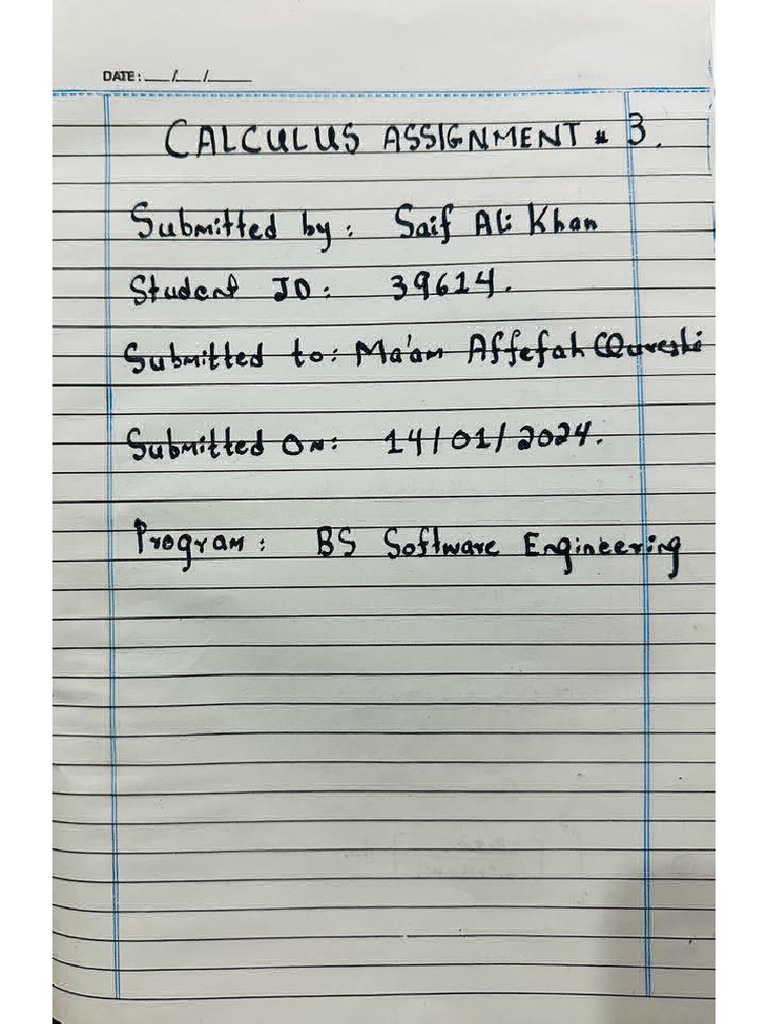 DATE: __/__/____
CALCULUS ASSIGNMENT # 3.
Submitted by: Saif Ali Khan
Student ID: 39614.
Submitted to: Ma'am Affefah Qureshi
Submitted On: 14/01/2024.
Program: BS Software Engineering